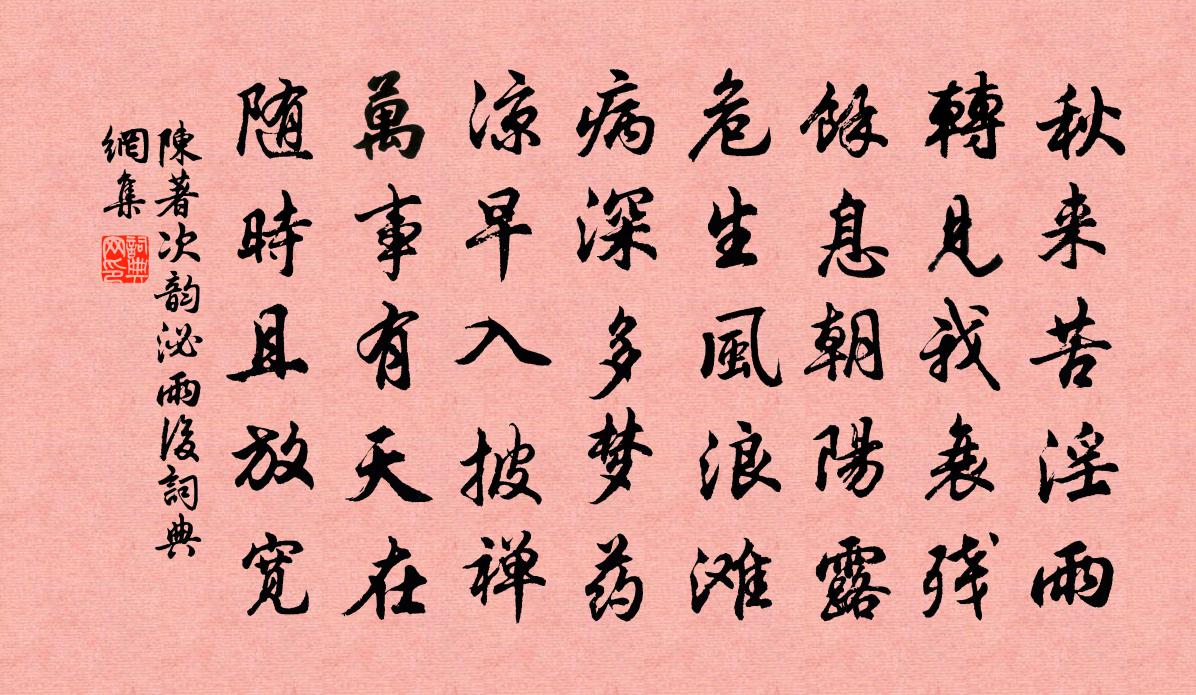 秋来苦淫雨
轉見我衰残
餘息朝陽露
危生風浪滩
病深多梦药
凉早入披禅
萬事有天在
随時且放宽
陳著次韵泌雨後詞典
網集
詞典
网印